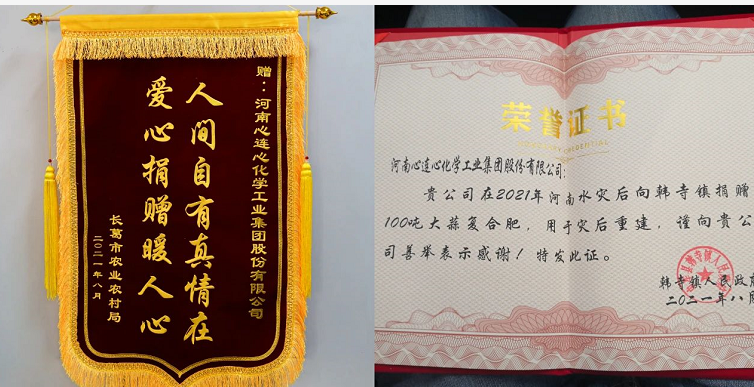 赠：河南心连心化学工业集团股份有限公司
人间自有真情在
爱心捐赠暖人心
长葛市农业农村局
二〇二一年八月
荣誉证书
河南心连心化学工业集团股份有限公司：
贵公司在2021年河南水灾后向韩寺镇捐赠
100吨大蒜复合肥，用于灾后重建，谨向贵公
司善举表示感谢！特发此证。
韩寺镇人民政府
二〇二一年八月